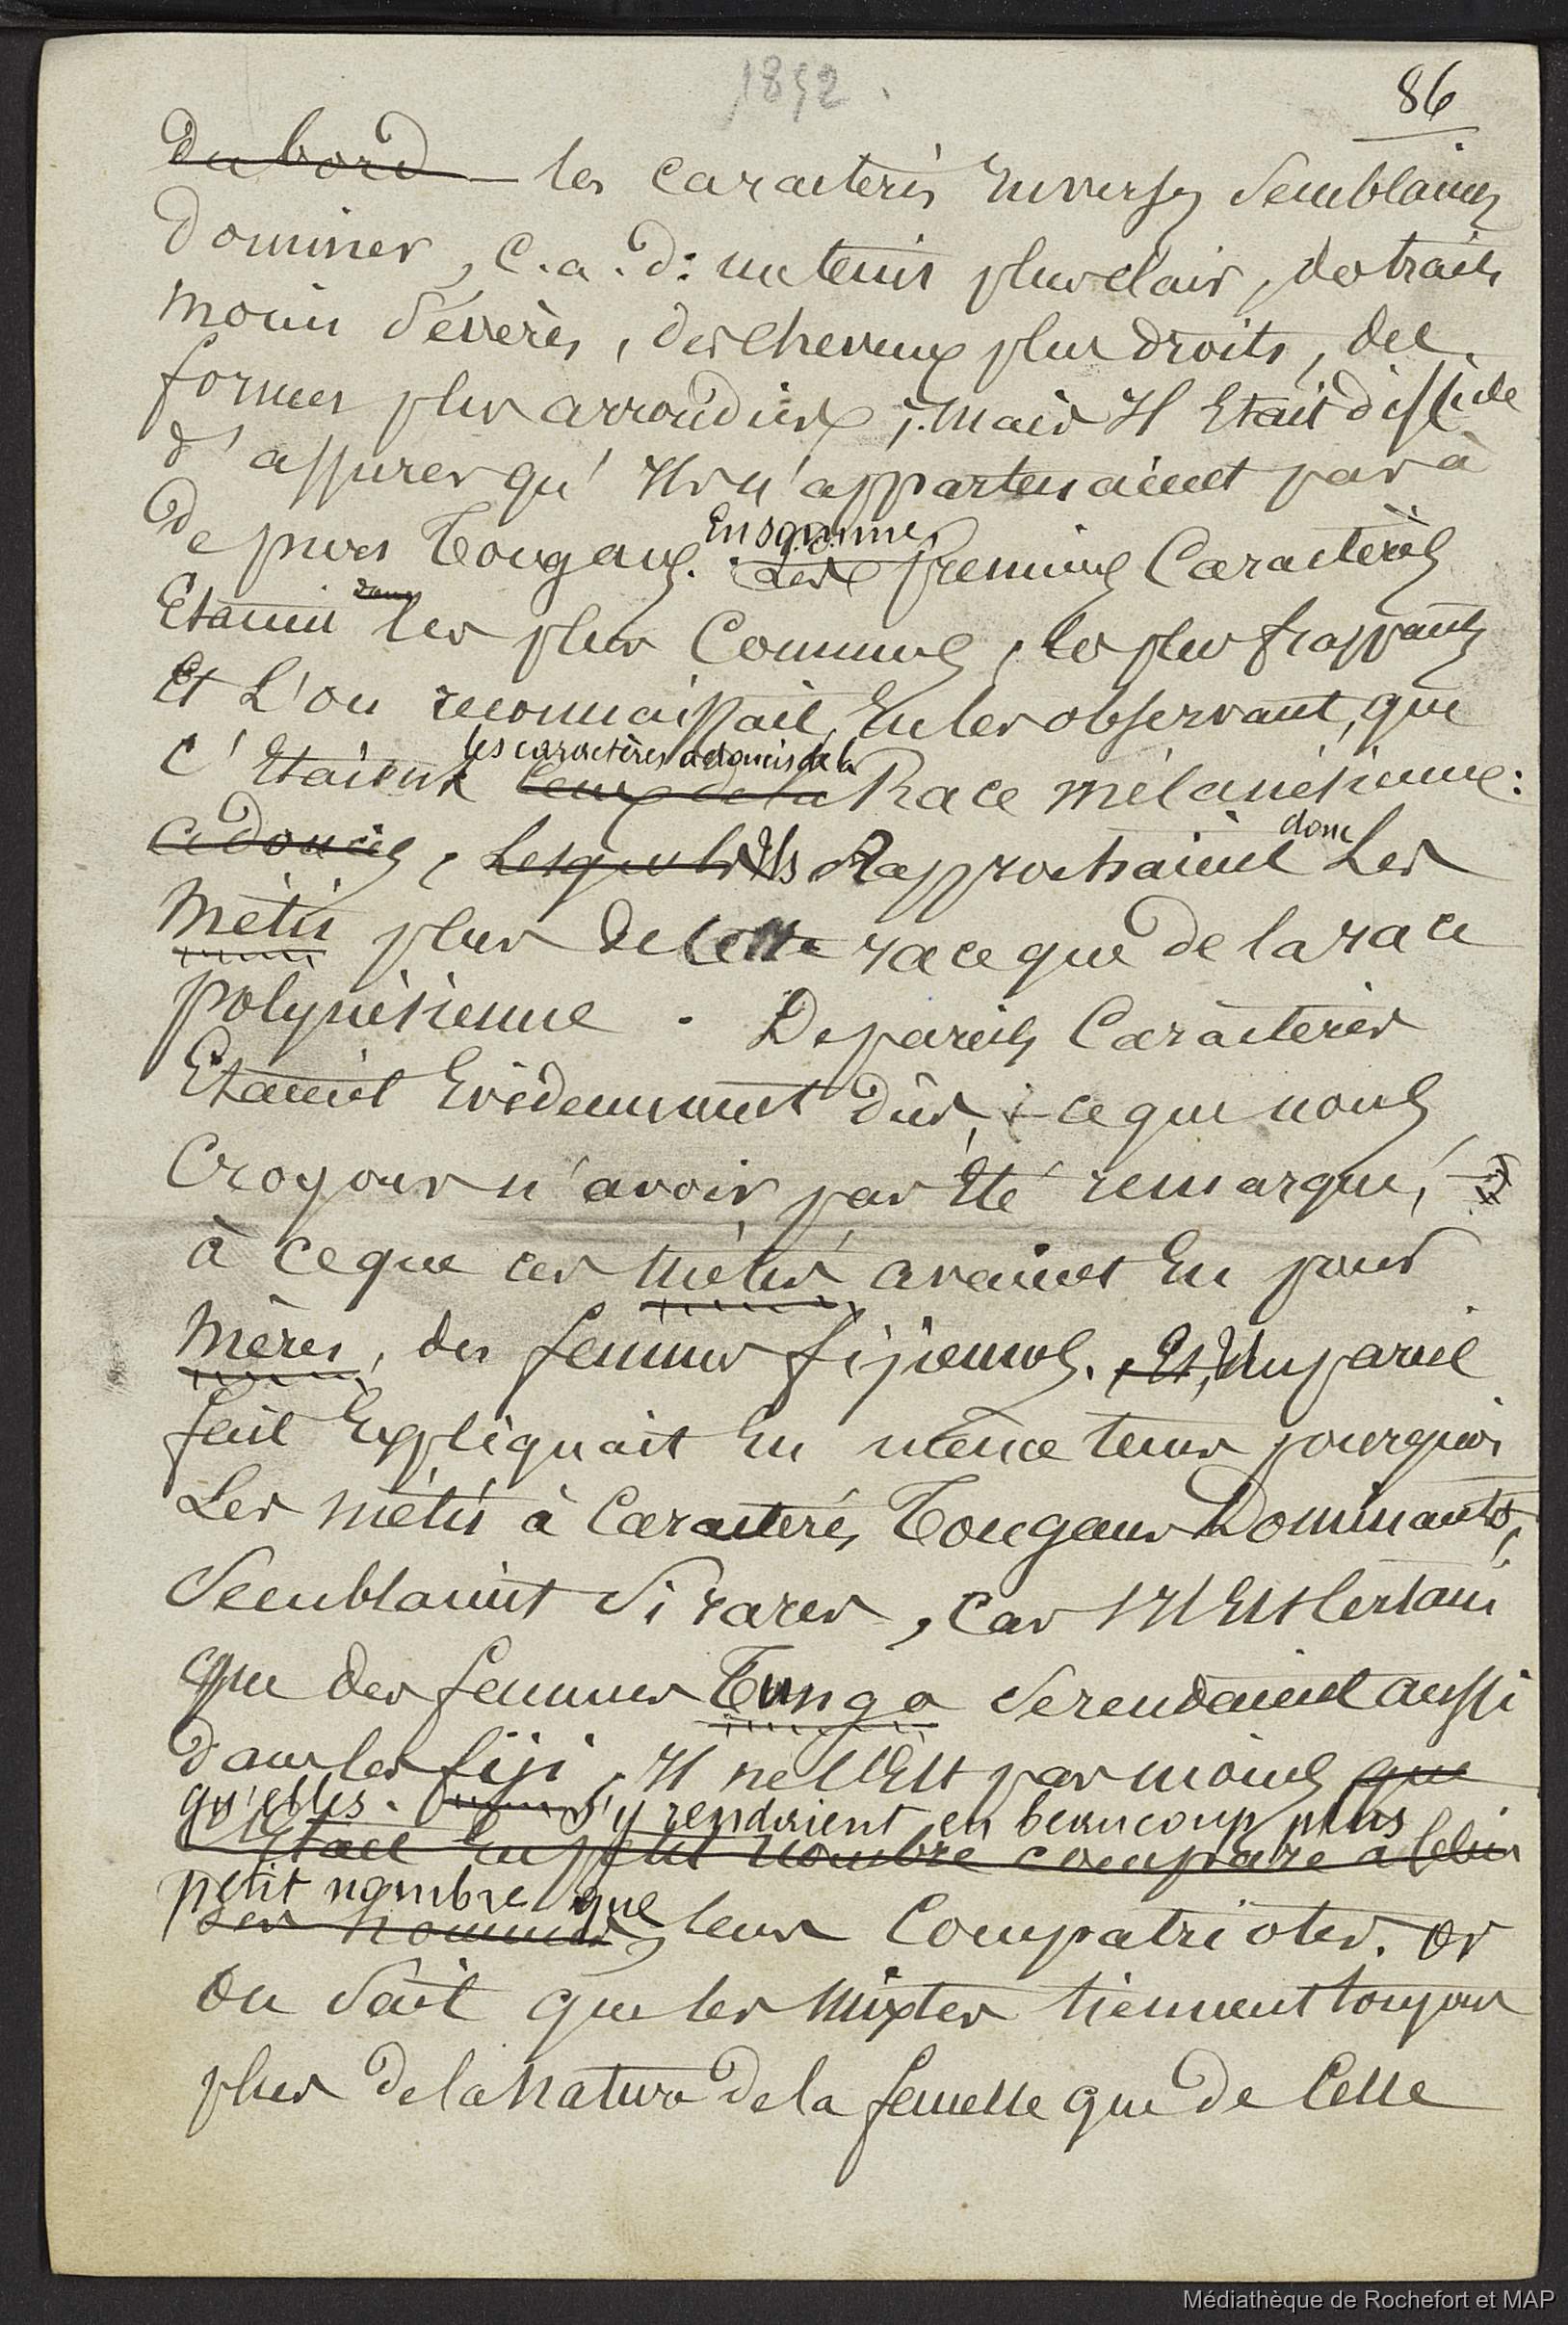 1852.
86
du bord — les caractères inverses semblaient
dominer, c.a.d: un teint plus clair, des traits
moins sévères, des cheveux plus droits, des
formes plus arrondies; mais il était difficile
d'assurer qu'ils n'appartenaient pas à
de purs Tongans. En somme, Les premiers caractères
Etaient donc les plus communs, les plus frappants
Et l'on reconnaissait, en les observant, que
c'étaient ceux de la les caractères adoucis de la Race mélanésienne:
adoucis, Lesquels Ils Rapprochaient donc Les
Métis plus de cette race que de la race
polynésienne. De pareils caractères
Etaient Evidemment dûs, ce que nous
croyons n'avoir pas été remarqué,
à ce que ces métis avaient eu pour
mères, des femmes fijiennes. Et, Un pareil
fait expliquait en même tems pourquoi
Les métis à caractères Tongans Dominants,
semblaient si rares, car s'il est certain
que des femmes Tunga se rendaient aussi
dans les fiji, il ne l'est pas moins que
qu'elles s'y rendaient en beaucoup plus
était en petit nombre comparé à celui
petit nombre que
des hommes, leurs compatriotes. or
on sait que les mixtes tiennent toujours
plus de la nature de la femelle que de celle
Médiathèque de Rochefort et MAP